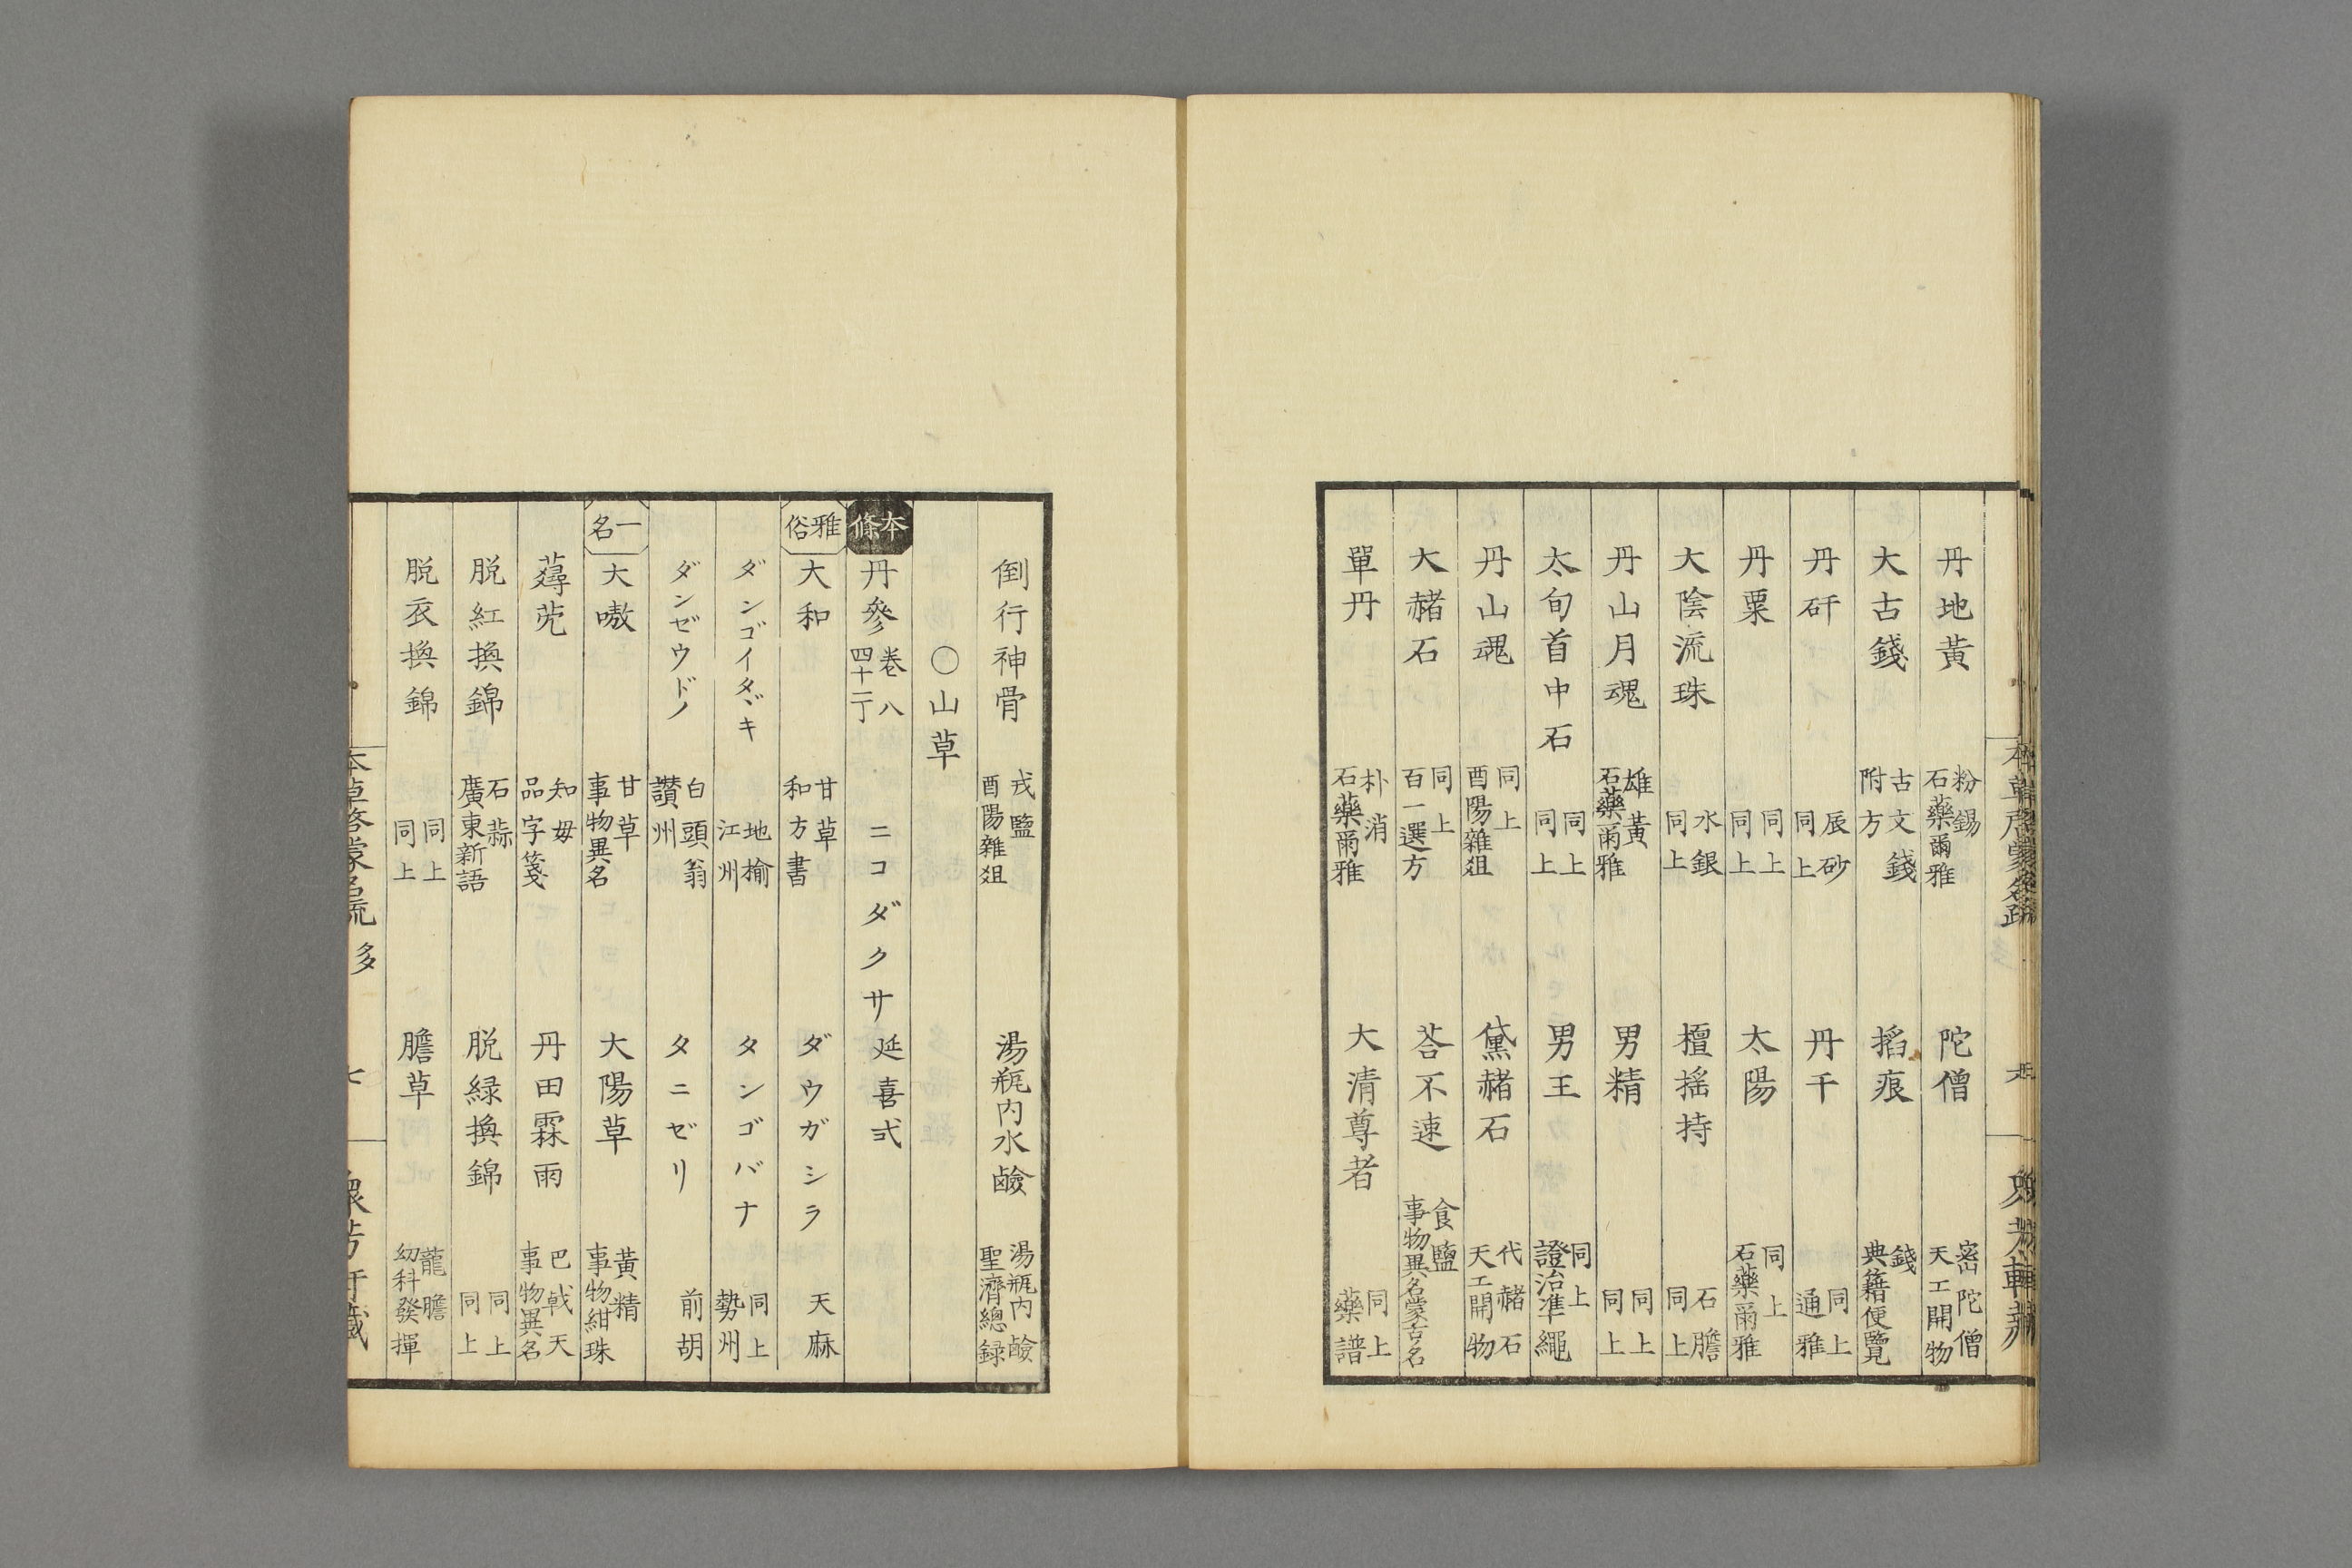 丹地黃 粉錫 石藥爾雅 陀僧 密陀僧 天工開物
大古錢 古文錢 附方 搯痕 錢 典籍便覽
丹矸 辰砂 同上 丹干 同上 通雅
丹粟 同上 同上 太陽 同上 石藥爾雅
大陰流珠 水銀 同上 檀搖持 石膽 同上
丹山月魂 雄黃 石藥爾雅 男精 同上 同上
太旬首中石 同上 同上 男王 同上 證治準繩
丹山魂 同上 酉陽雜俎 黛赭石 代赭石 天工開物
大赭石 同上 百一選方 荅不速 食鹽 事物異名蒙古名
單丹 朴消 石藥爾雅 大清尊者 同上 藥譜
倒行神骨 戎鹽 酉陽雜俎 湯瓶內水鹼 湯瓶內鹼 聖濟總録
〇山草
本條 丹參 卷八 四十二丁 ニコダクサ 延喜式
雅俗 大和 甘草 和方書 ダウガシラ 天麻
ダンゴイタヾキ 地榆 江州 タンゴバナ 同上 勢州
ダンゼウドノ 白頭翁 讃州 タニゼリ 前胡
一名 大嗷 甘草 事物異名 大陽草 黃精 事物紺珠
薚 知母 品字箋 丹田霖雨 巴戟天 事物異名
脱紅換錦 石蒜 廣東新語 脱緑換錦 同上 同上
脱衣換錦 同上 同上 膽草 龍膽 幼科發揮
本草啓蒙名疏 多 七 衆芳軒藏